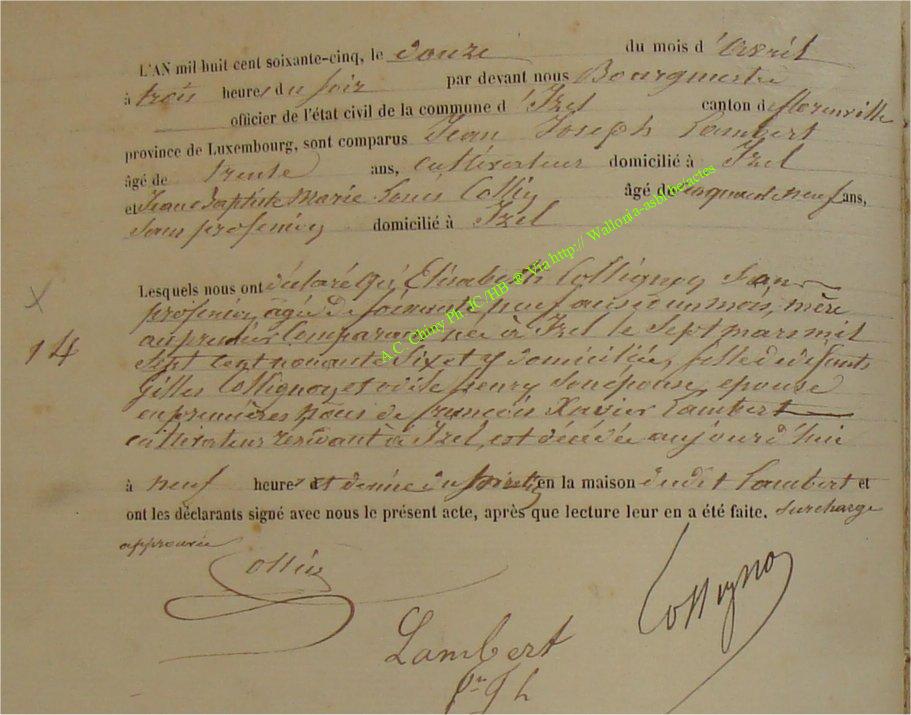 L'AN mil huit cent soixante-cinq, le douze du mois d'avril
à trois heures du soir par devant nous Bourgmestre
officier de l'état civil de la commune d'Izel canton de florenville
province de Luxembourg, sont comparus Jean Joseph Lambert
âgé de trente ans, cultivateur domicilié à Izel
et Jean Baptiste Marie Louis Collin âgé de cinquante neuf ans,
sans profession domicilié à Izel
Lesquels nous ont déclaré qu'Elisabeth Collignon sans
profession, agée de soixante neuf ans un mois, mère
au premier Comparant née à Izel le Sept mars mil
Sept cent nonante Six et y domiciliée, fille de défunts
Gilles Collignon et Odile henry Son épouse, épouse
en premières noces de françois Xavier Lambert
cultivateur résidant à Izel, est décédée aujourd'hui
14
à neuf heures et demie du en la maison dudit Lambert et
ont les déclarants signé avec nous le présent acte, après que lecture leur en a été faite. Surcharge
approuvée
Collin
Collignon
Lambert
Jn Jh
A.C. Chiny Ph JC/HB ® Via http:// Wallonia-asbl.be/actes